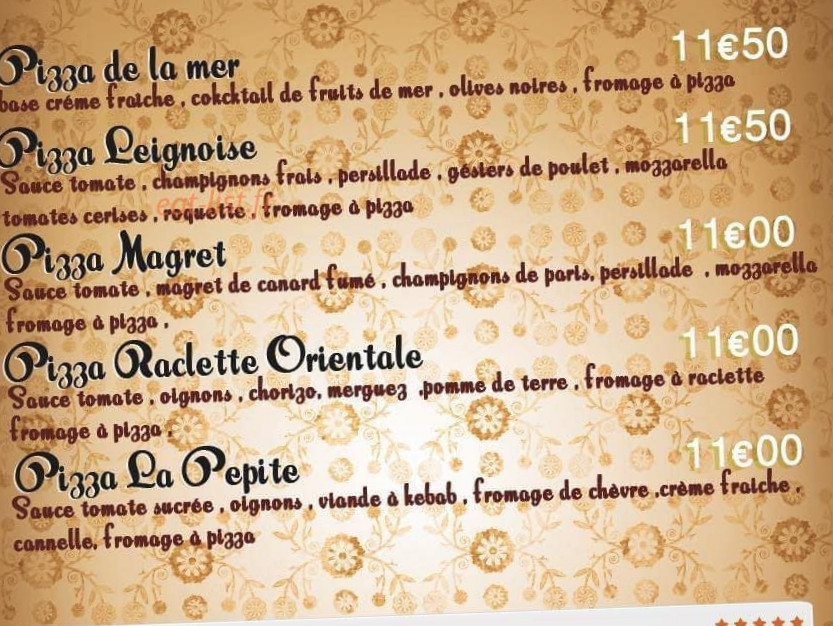 Pizza de la mer 11€50
base créme fraiche , cokcktail de fruits de mer , olives noires , fromage à pizza
Pizza Leignoise 11€50
Sauce tomate , champignons frais , persillade , gésiers de poulet , mozzarella
tomates cerises , roquette , fromage à pizza
Pizza Magret 11€00
Sauce tomate , magret de canard fumé , champignons de paris, persillade , mozzarella
fromage à pizza ,
Pizza Raclette Orientale 11€00
Sauce tomate , oignons , chorizo, merguez ,pomme de terre , fromage à raclette
fromage à pizza ,
Pizza La Pepite 11€00
Sauce tomate sucrée , oignons , viande à kebab , fromage de chèvre ,crème fraiche ,
cannelle, fromage à pizza